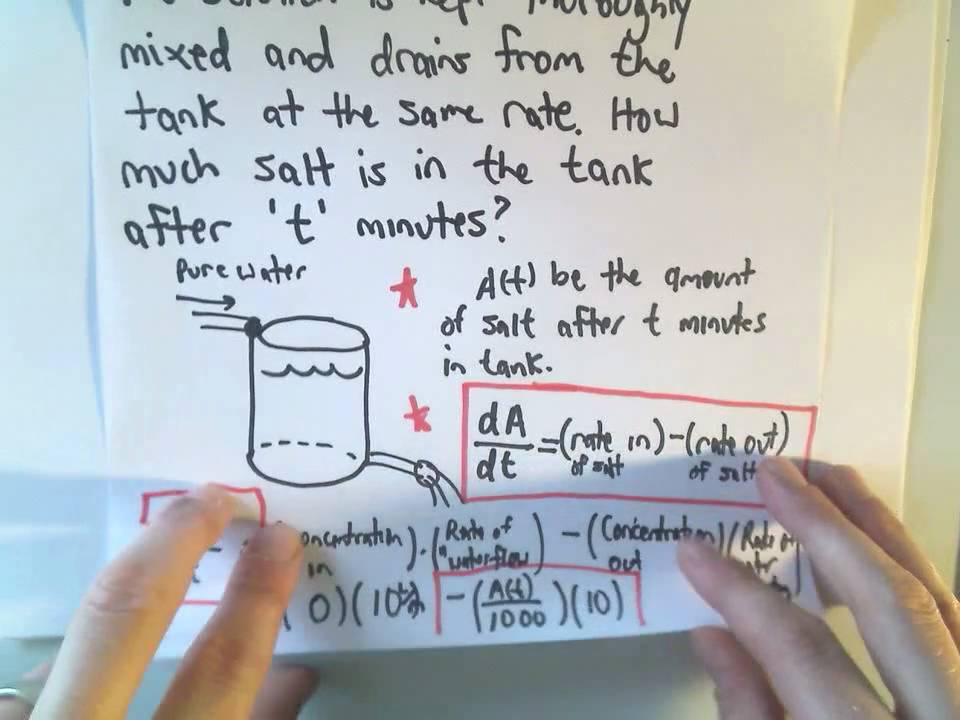 is kept thoroughly
mixed and drains from the
tank at the same rate. How
much salt is in the tank
after 't' minutes?
pure water
A(t) be the amount
of salt after t minutes
in tank.
dA/dt = (rate in of salt) - (rate out of salt)
oncentration in) · (Rate of water flow) - (Concentration out) (Rate of
0) (10 - (A(t)/1000) (10)